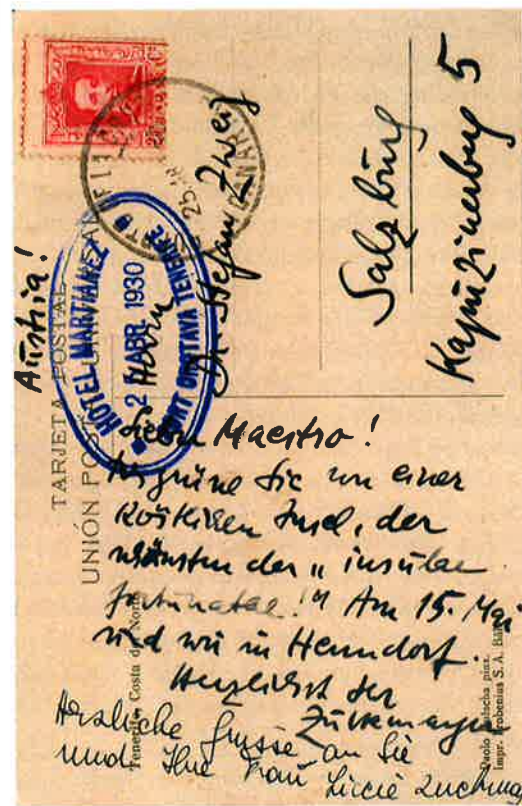 Austria!
TARJETA POSTAL
HOTEL MARTIANEZ
2 ABR 1930
PORT OROTAVA TENERIFE
25
Herrn
Dr. Stefan Zweig
Salzburg
Kapuzinerberg 5
Lieber Maestro!
Wir grüßen Sie von einer
köstlichen Insel, der
schönsten der „insulae
fortunatae!" Am 15. Mai
sind wir in Henndorf.
Herzlichst der
Zuckmayer
Herzliche Grüsse an Sie
und Ihre Frau Liccie Zuckmay
Tenerife, Costa del Norte
pinx.
impr. Frobenius S. A.